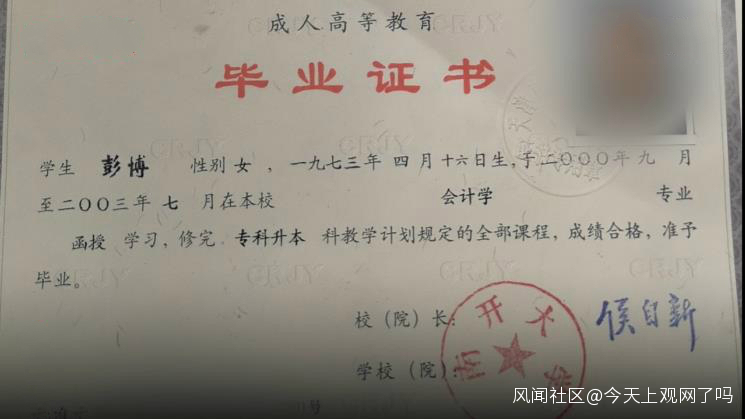 成人高等教育
毕业证书
学生 彭博 性别 女 ，一九七三年 四 月 十六日生，于二〇〇〇年 九 月
至二〇〇三年 七 月在本校 会计学 专业
函授 学习，修完 专科升本 科教学计划规定的全部课程，成绩合格，准予
毕业。
校（院）长： 侯自新
学校（院）：
南开大学
CRJY
风闻社区@今天上观网了吗